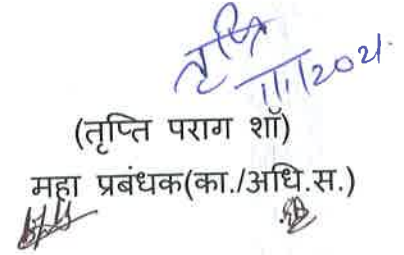 तृप्ति
1/1/2021
(तृप्ति पराग शॉ)
महा प्रबंधक(का./अधि.स.)